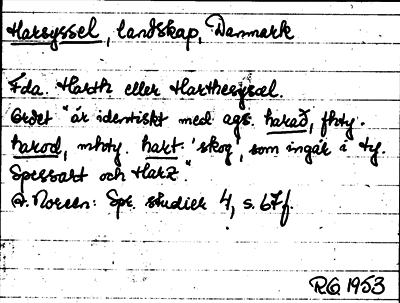 Harsyssel, landskap, Danmark
Fda. Harth eller Harthesysæl.
Ordet "är identiskt med ags. harað, fhty.
harod, mhty. hart 'skog', som ingår i ty.
Spessart och Harz."
A. Noreen: Spr. studier 4, s. 67f.
RG 1953